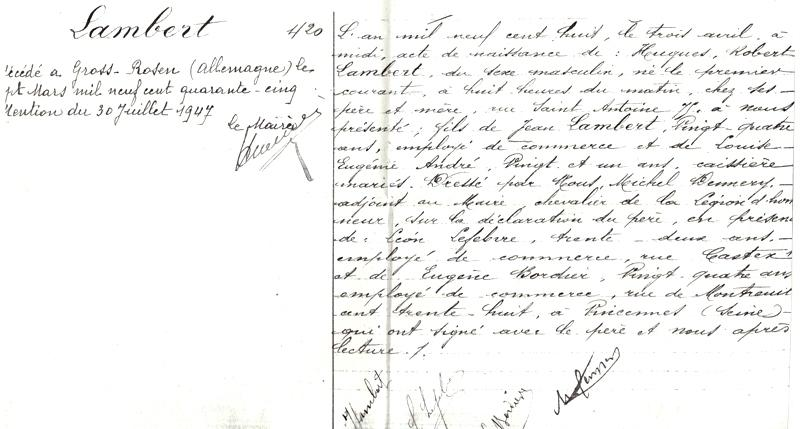 Lambert 420
écédé a Gross-Rosen (Allemagne) le
pt Mars mil neuf cent quarante-cinq
ention du 30 Juillet 1947
Le Maire
L'an mil neuf cent huit, le trois avril, à
midi, acte de naissance de : Hugues, Robert
Lambert, du sexe masculin, né le premier
courant, à huit heures du matin, chez ses
père et mère, rue Saint Antoine ; à nous
présenté ; fils de Jean Lambert, Vingt-quatre
ans, employé de commerce et de Louise
Eugénie André, Vingt et un ans, caissière
mariés. Dressé par Nous, Michel Dennery,
adjoint au Maire, chevalier de la Légion d'hon
neur, sur la déclaration du père, en présen
de : Léon Lefebvre, trente-deux ans,
employé de commerce, rue Castex
et de Eugène Bordier, Vingt-quatre ans
employé de commerce, rue de Montreuil
cent trente-huit, à Vincennes (Seine)
qui ont signé avec le père et nous après
lecture ./.
Lambert